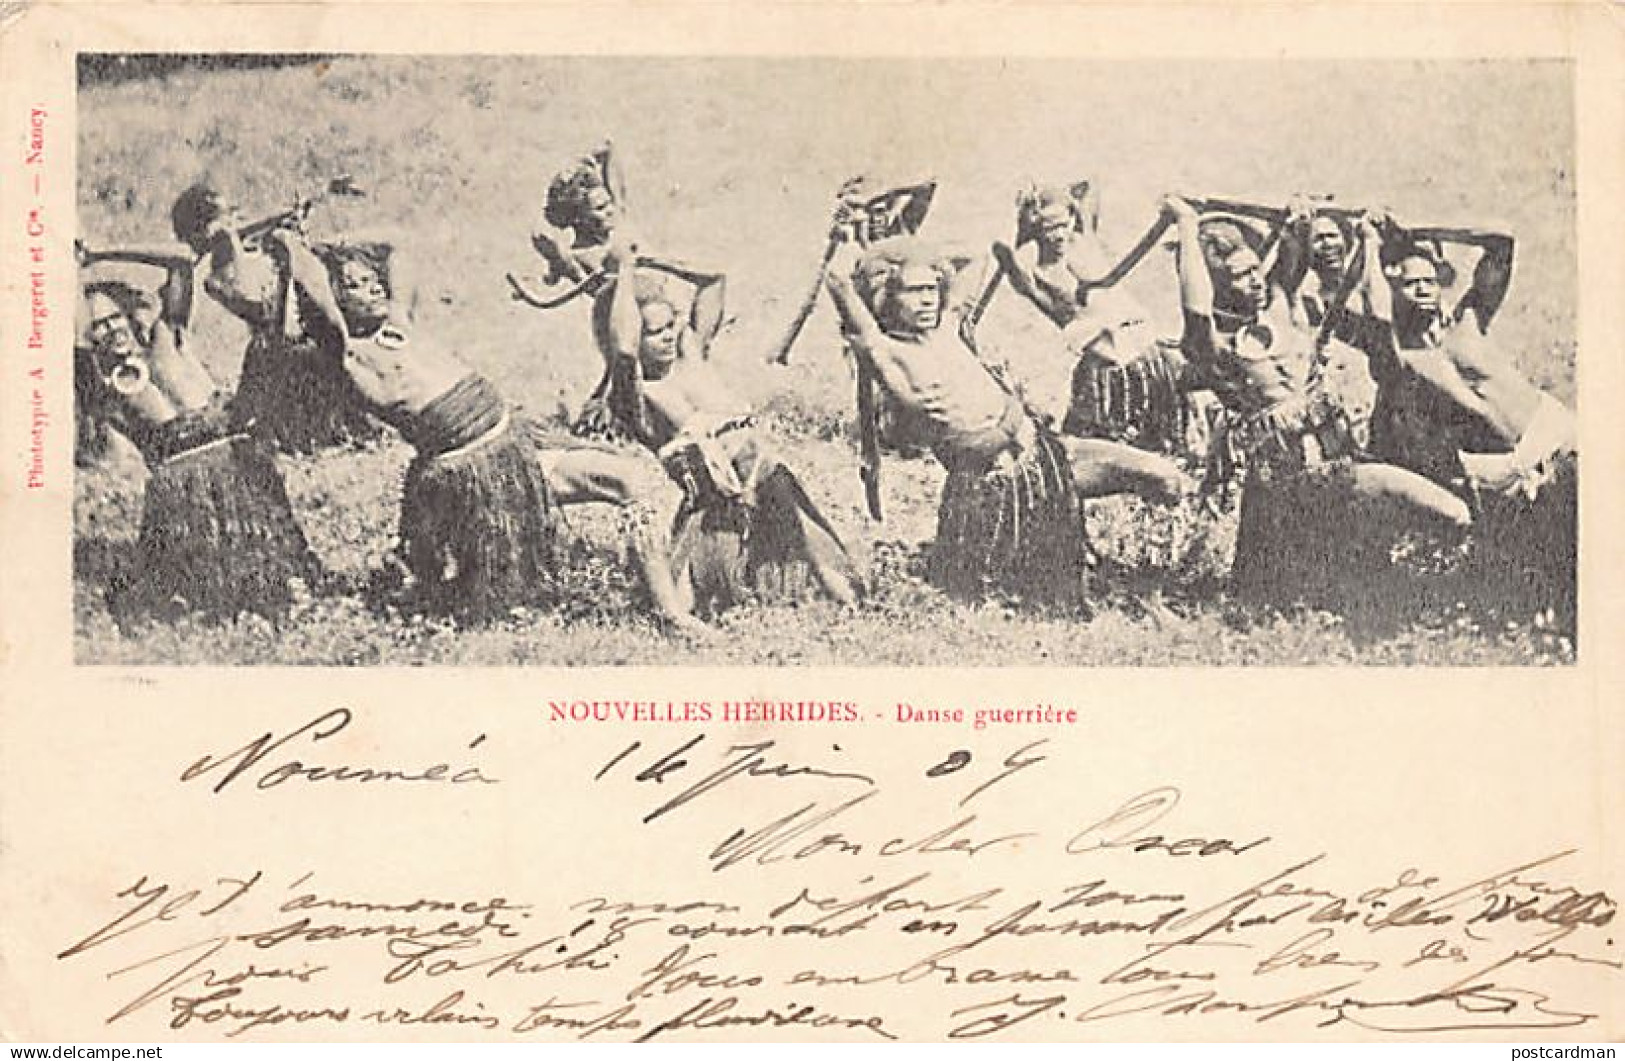 Phototypie A Bergeret et Cie. — Nancy.
NOUVELLES HÉBRIDES. - Danse guerrière
Nouméa 14 Juin 04
Mon cher Oscar
Je t'annonce mon départ sous peu de jours
samedi 18 courant en passant par les îles Wallis
pour Tahiti Vous embrasse tous bien
Toujours vilain temps pluvieuse J.
postcardman